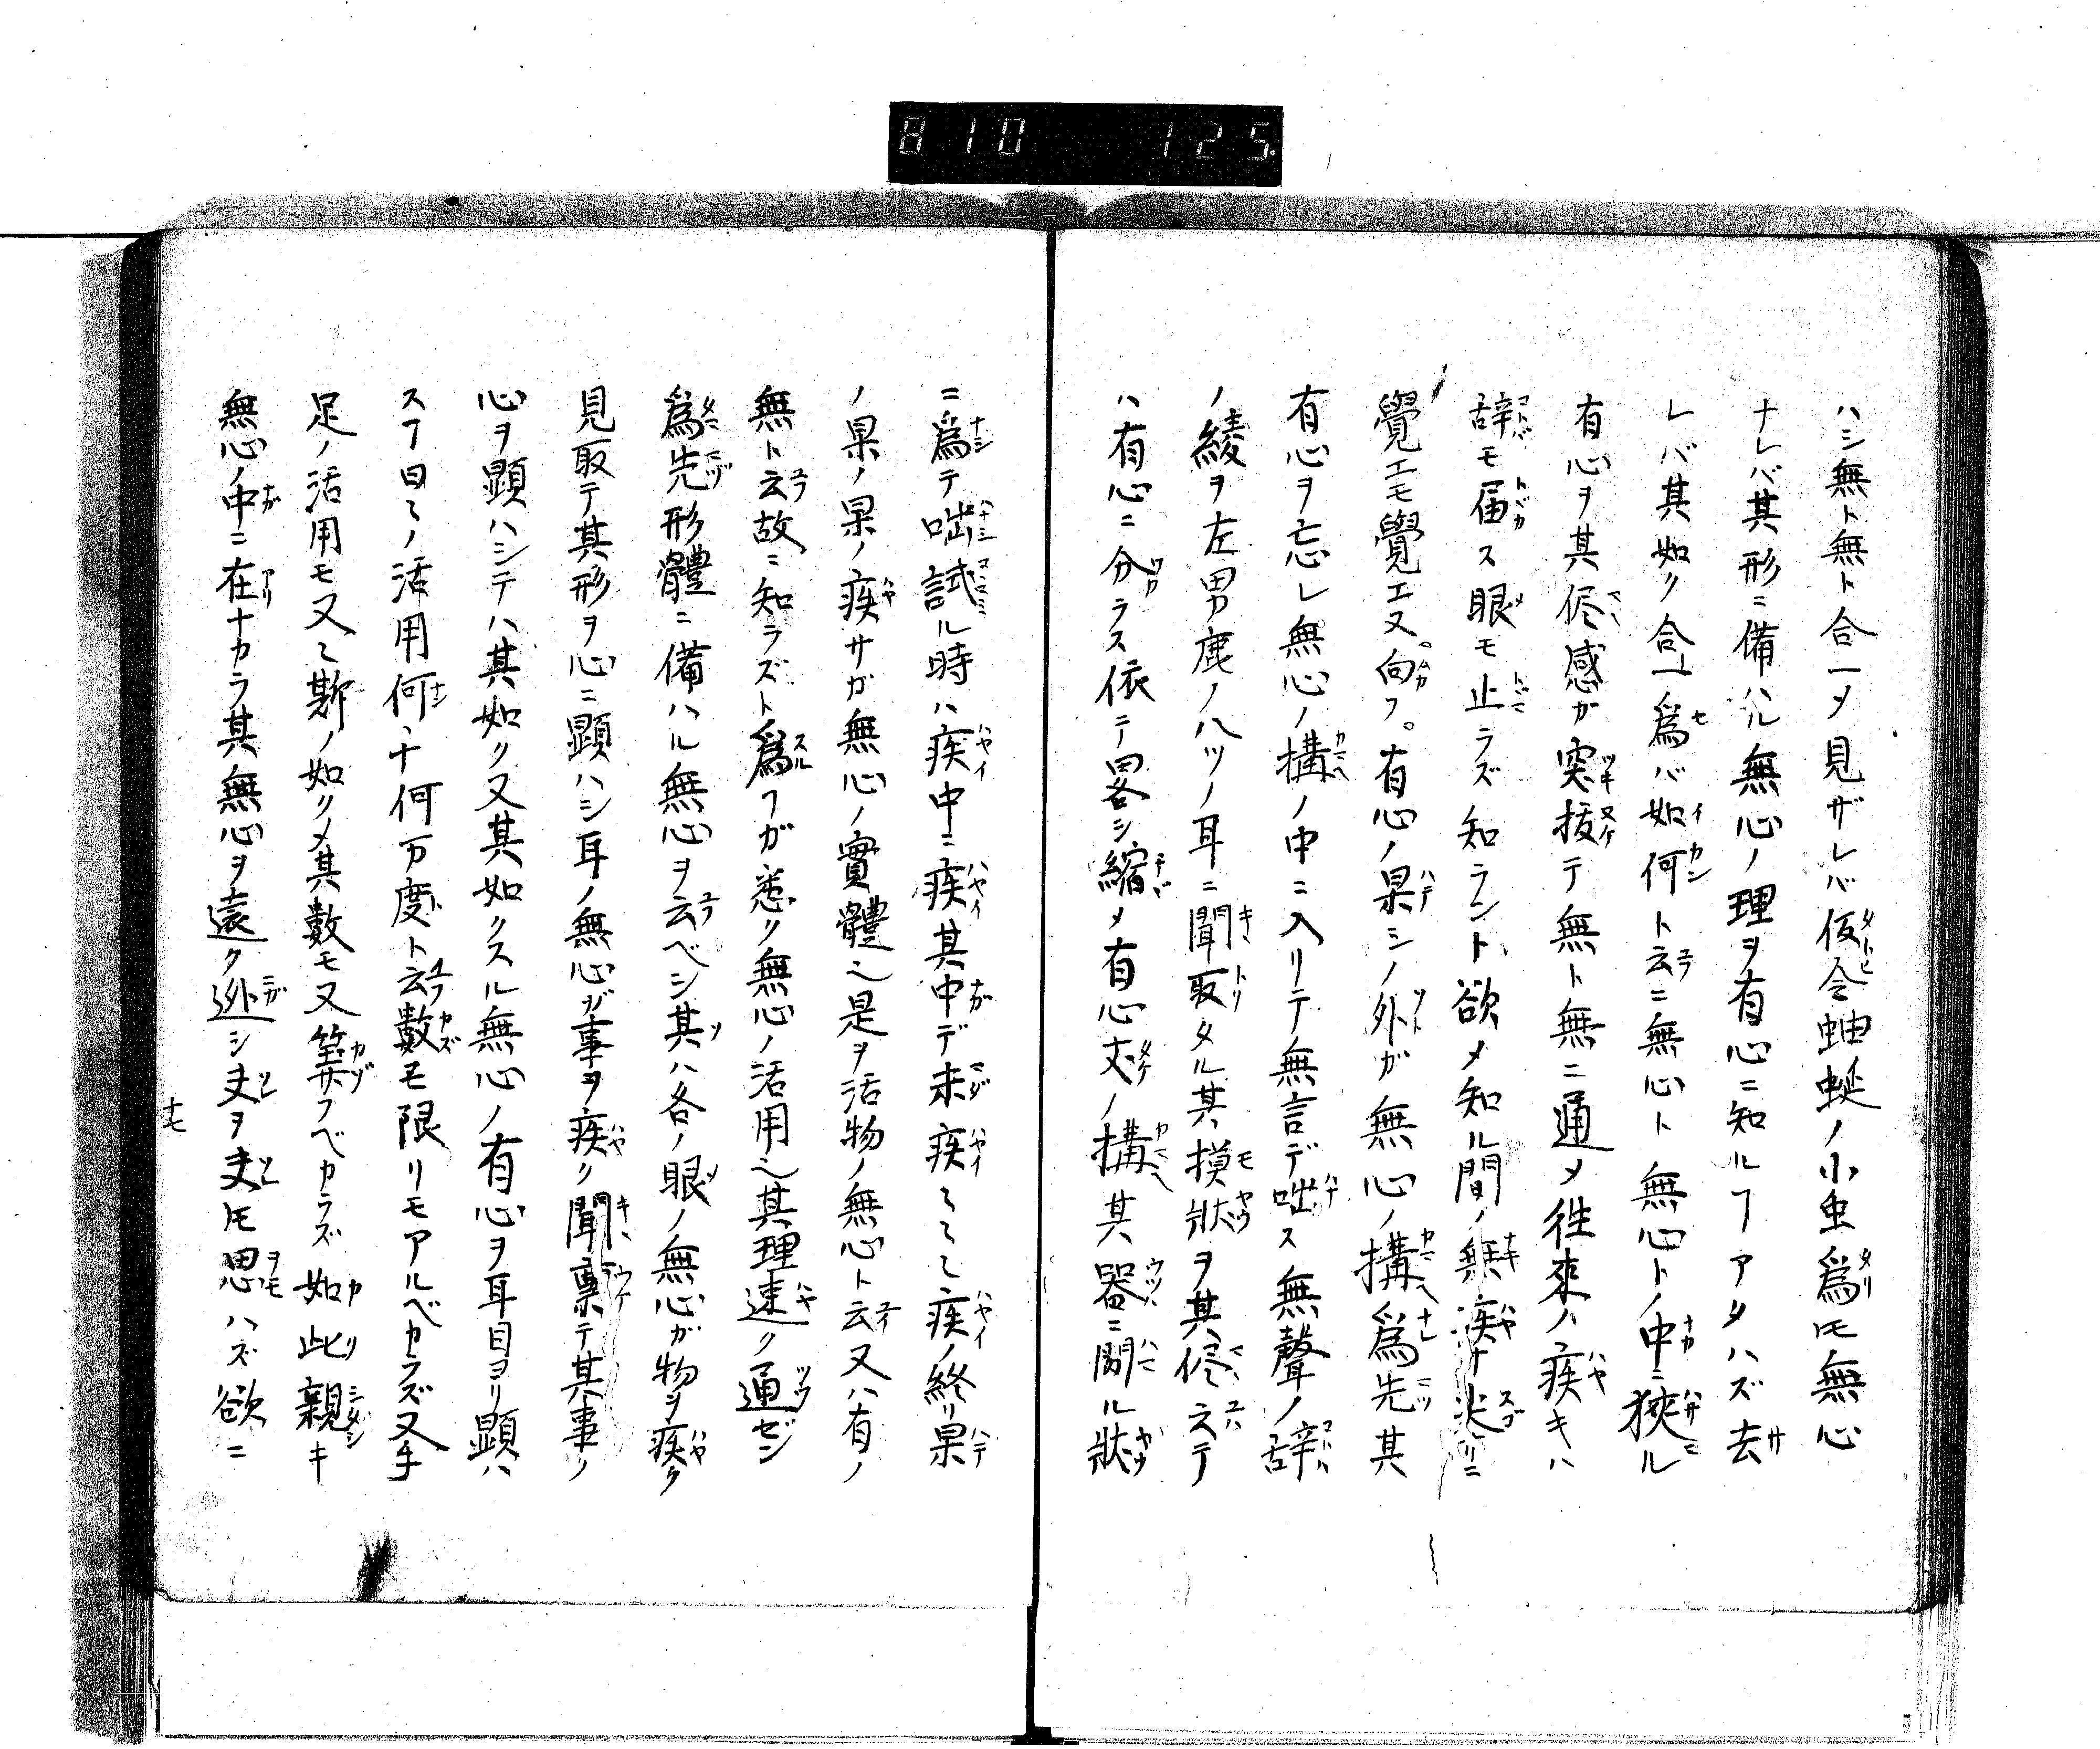 810 125
ハシ無ト無ト合一〆見ザレバ仮令蚰蜒ノ小虫爲ㇳモ無心
ナレバ其形ニ備ハル無心ノ理ヲ有心ニ知ルヿアタハズ去
レバ其如ク合一爲バ如何ト云ニ無心ト無心トノ中ニ狹ル
有心ヲ其侭感ガ突拔テ無ト無ニ通〆徃來ハ疾キハ
辞モ届ス眼モ止ラズ知ラント欲〆知ル間ノ無疾ナ
覺エモ覺エ又向フ。有心ノ果シノ外ガ無心ノ構爲先其
有心ヲ忘レ無心ノ構ノ中ニ入リテ無言デ咄ス無聲ノ辞
ノ綾ヲ左男鹿ノ八ツノ耳ニ聞取タル其摸狀ヲ其侭
ハ有心ニ分ラス依テ畧シ縮〆有心丈ノ構其器ニ関ル狀
ニ爲テ咄試ル時ハ疾中ニ疾其中デ未疾〻〻〻疾ノ終リ果
ノ果ノ果ノ疾サガ無心ノ實體也是ヲ活物ノ無心ト云又ハ有ノ
無ト云故ニ知ラズト爲ヿガ悉ク無心ノ活用也其理速ク通ゼン
爲先形體ニ備ハル無心ヲ云ベシ其ハ各ノ眼ノ無心ガ物ヲ疾ク
見取テ其形ヲ心ニ顕ハシ耳ノ無心ガ事ヲ疾ク聞禀テ其事ノ
心ヲ顕ハシテハ其如ク又其如クスル無心ノ有心ヲ耳目ヨリ顕ハ
スヿ日〻ノ活用何千何万度ト云數モ限リモアルベカラズ又手
足ノ活用モ又〻斯ノ如ク〆其數モ又算フベカラズ如此親キ
無心ノ中ニ在ナカラ其無心ヲ遠ク迯シ夫ヲ夫ㇳモ思ハズ欲ニ
十七